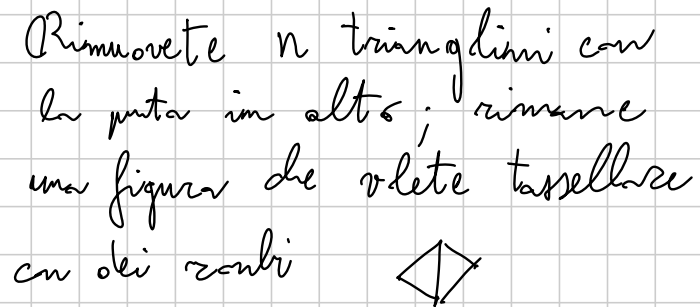 Rimuovete n triangolini con
la punta in alto; rimane
una figura che volete tassellare
con dei rombi